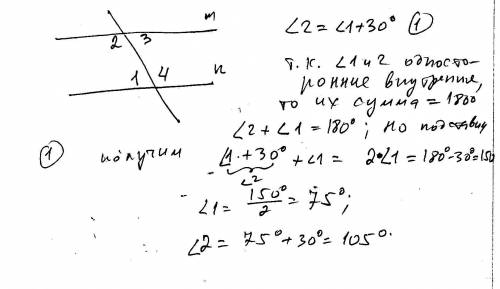 m
2 3
1 4
n
∠2 = ∠1+30° ①
т.к. ∠1 и 2 односто-
ронние внутренние,
то их сумма = 180°
∠2 + ∠1 = 180°; но подставив
① получим ∠1 + 30° + ∠1 = 2∠1 = 180°-30°=150
∠2
∠1 = 150°/2 = 75°;
∠2 = 75° + 30° = 105°.